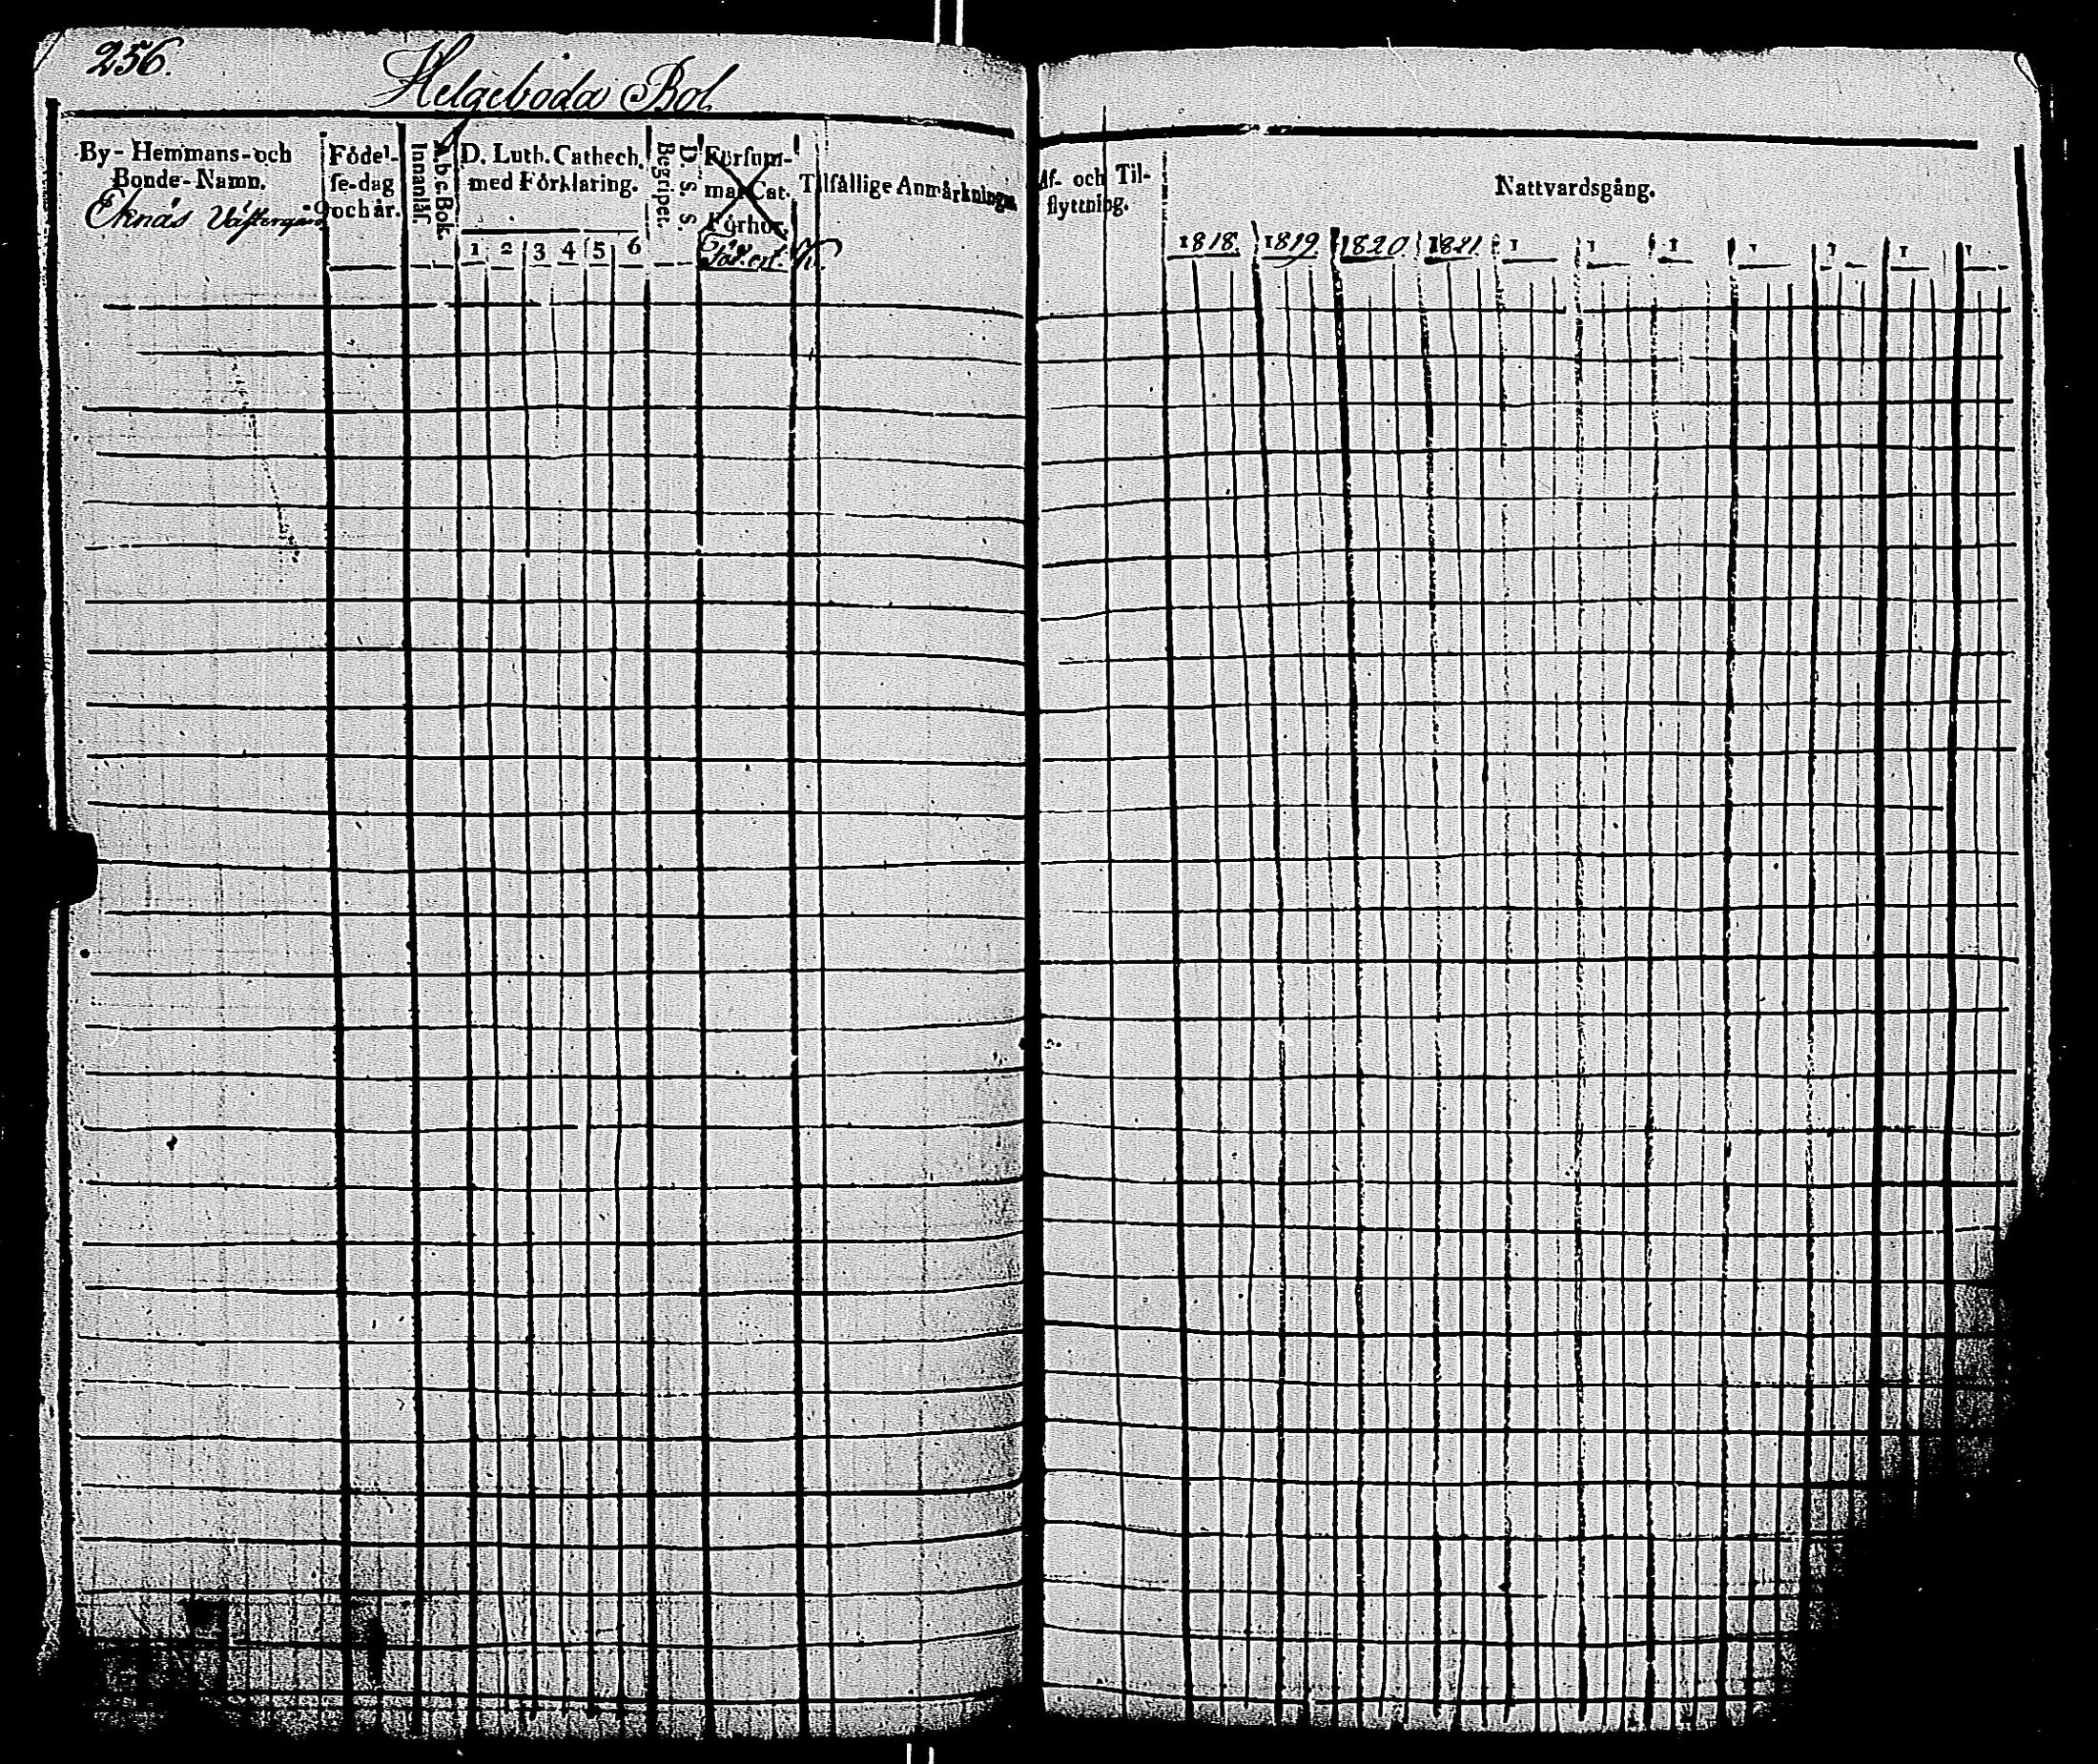 256.
Helgeboda Bol.
By- Hemmans- och
Bonde-Namn.
Eknäs Västergård
Födel-
se-dag
och år.
Innanläs.
A.b.c.Bok.
D. Luth. Cathech.
med Förklaring.
1 2 3 4 5 6
Begripet.
D. S. S.
Försum-
mat Cat.
Förhör.
Tilfällige Anmärkningar
Af- och Til-
flyttning.
Nattvardsgång.
1818. 1819. 1820. 1821. 1 1 1 1 1 1 1